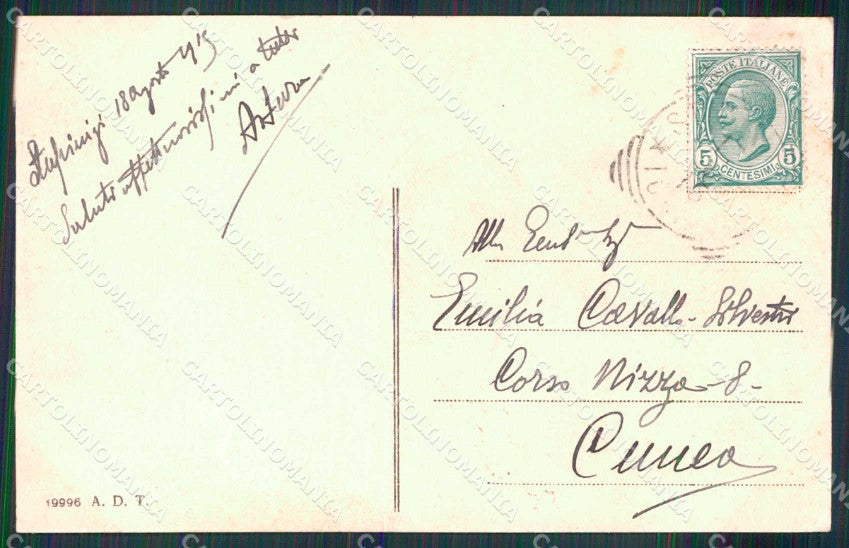 Stupinigi 18 agosto 1915
Saluti affettuosissimi a tutti
POSTE ITALIANE
5 5
CENTESIMI
Alla Gent
Emilia Cavallo-Silvestri
Corso Nizza-8-
Cuneo
19996 A. D. T.
CARTOLINOMANIA